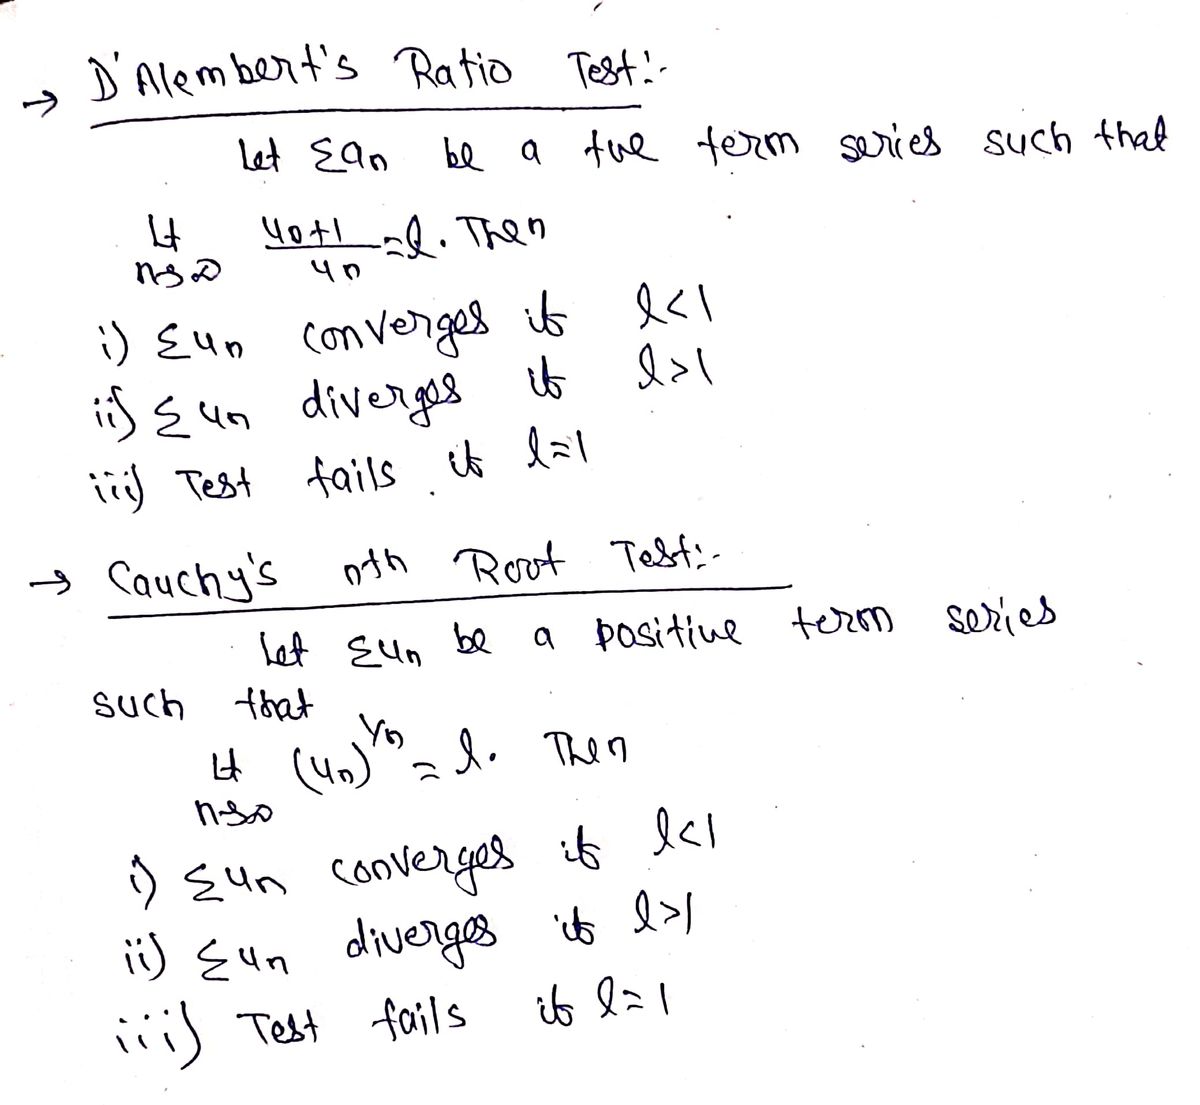 → D'Alembert's Ratio Test:-
Let Σan be a +ve term series such that
Lt n→∞ un+1/un = l. Then
i) Σun converges if l<1
ii) Σun diverges if l>1
iii) Test fails if l=1
→ Cauchy's nth Root Test:-
Let Σun be a positive term series
such that
Lt n→∞ (un)^1/n = l. Then
i) Σun converges if l<1
ii) Σun diverges if l>1
iii) Test fails if l=1